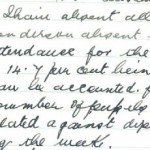 Thain absent all
anderson absent.
tendance for the
14.7 per cent being
an be accounted f
number of pupils
lated against dip
of the week.